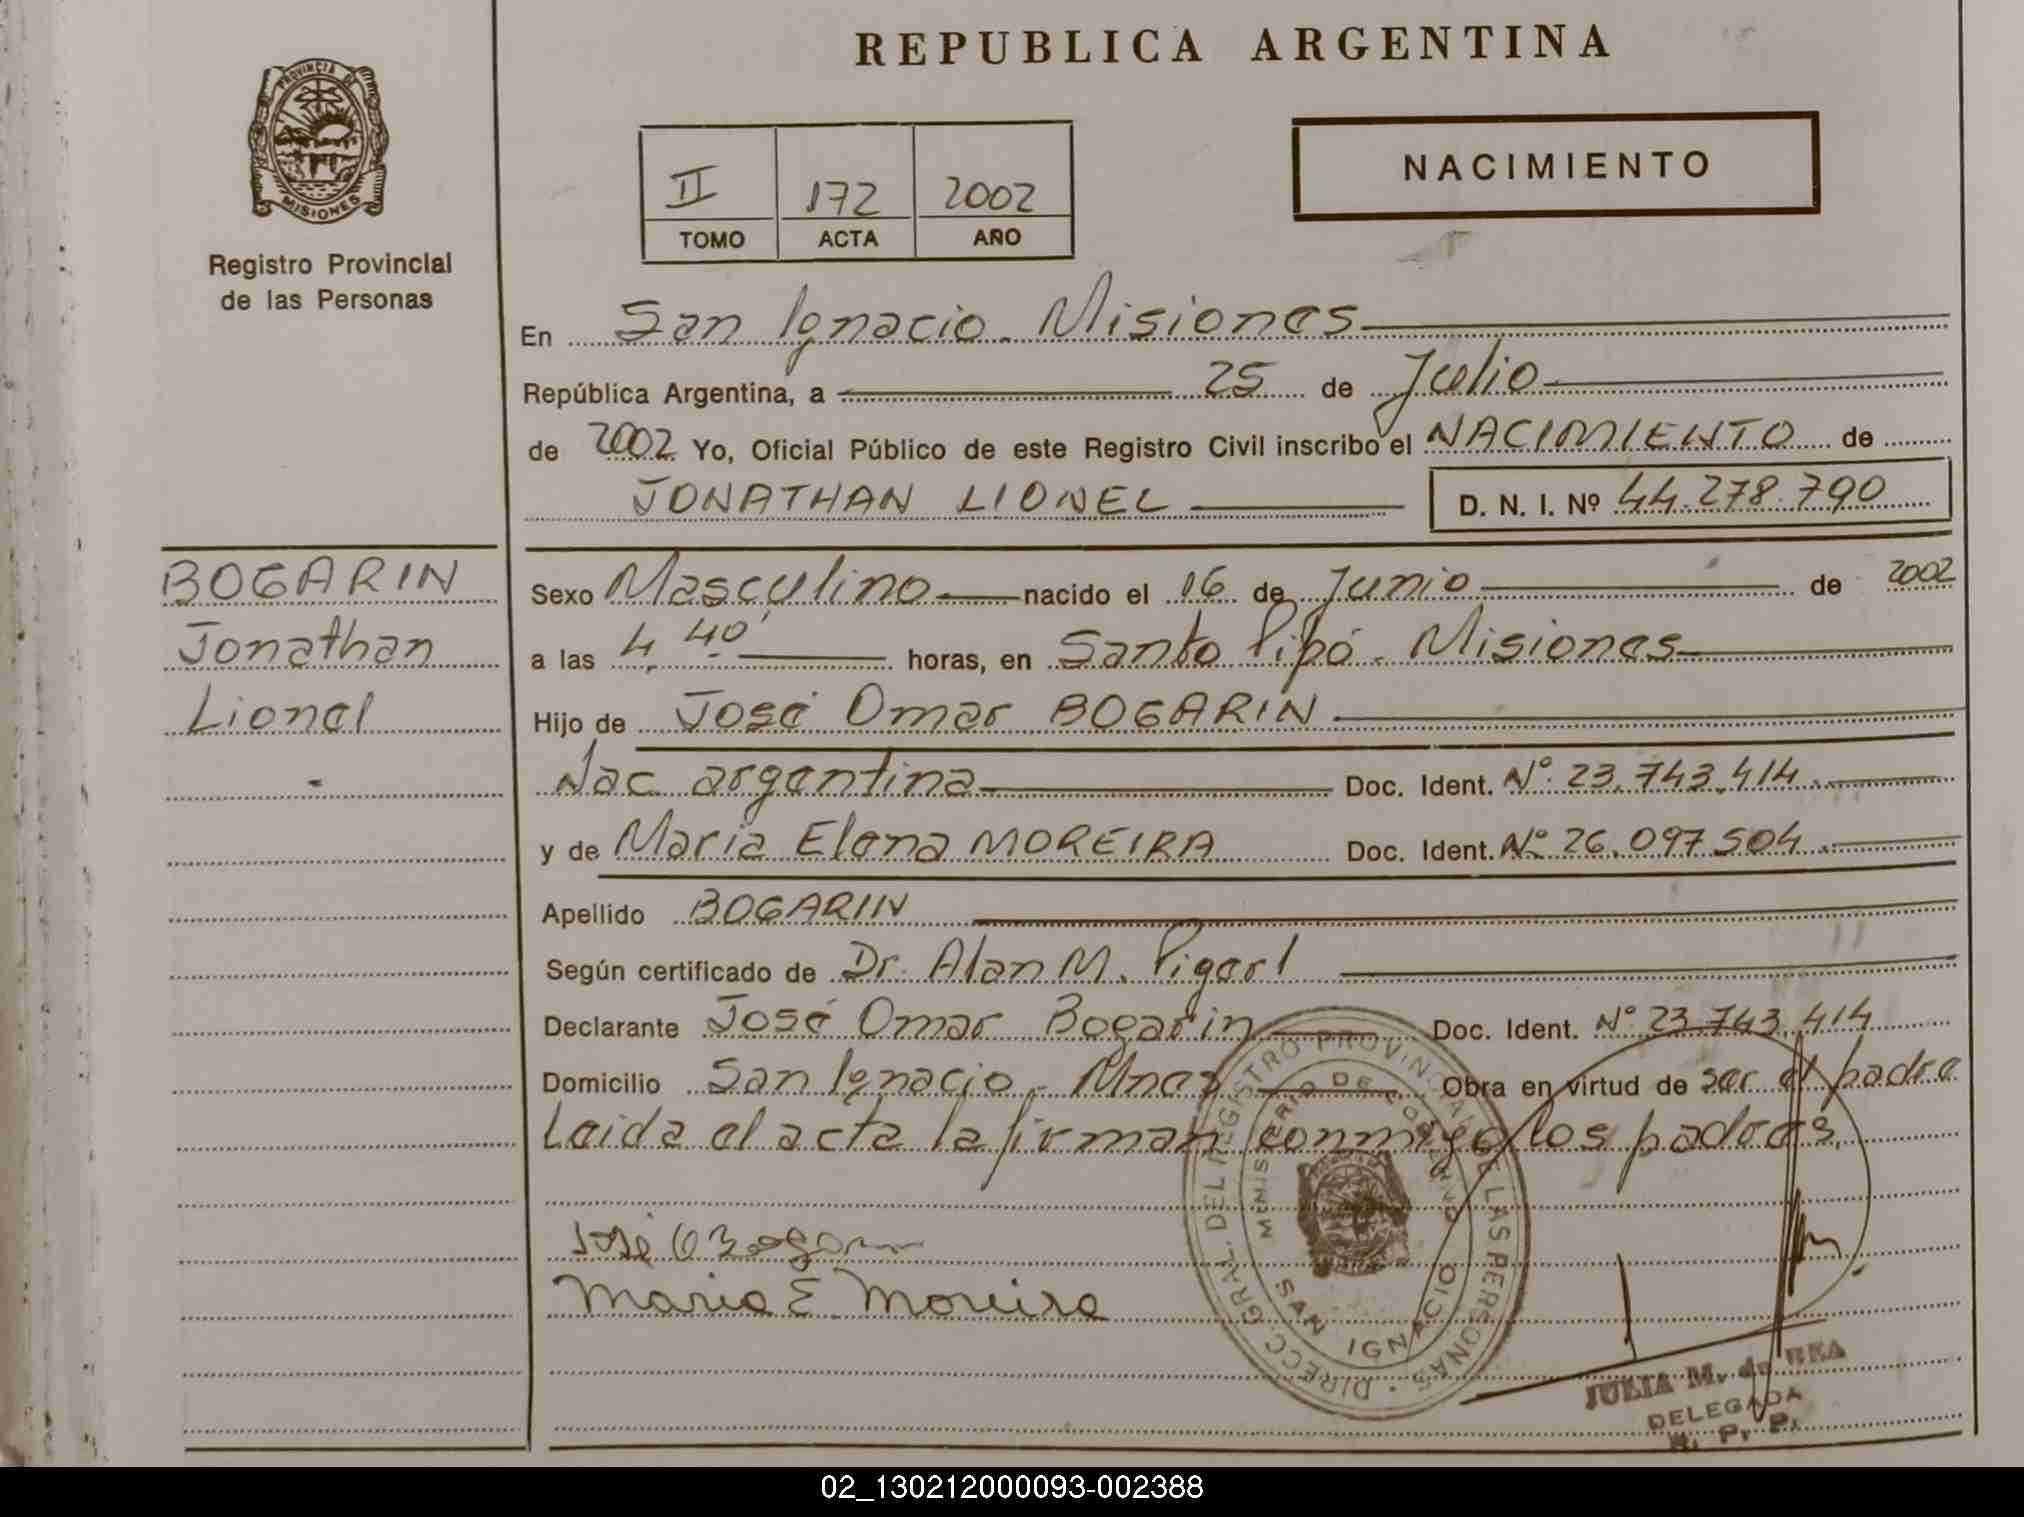 REPUBLICA ARGENTINA
PROVINCIA DE
MISIONES
Registro Provincial
de las Personas
II 172 2002
TOMO ACTA AÑO
NACIMIENTO
En San Ignacio - Misiones
República Argentina, a 25 de Julio
de 2002 Yo, Oficial Público de este Registro Civil inscribo el NACIMIENTO de
JONATHAN LIONEL D. N. I. Nº 44.278.790
BOGARIN
Jonathan
Lionel
Sexo Masculino nacido el 16 de Junio de 2002
a las 4.40' horas, en Santo Pipó - Misiones
Hijo de José Omar BOGARIN
Nac argentina Doc. Ident. Nº 23.743.414
y de Maria Elena MOREIRA Doc. Ident. Nº 26.097.504
Apellido BOGARIN
Según certificado de Dr. Alan M.
Declarante José Omar Bogarin Doc. Ident. Nº 23.743.414
Domicilio San Ignacio - Mnes Obra en virtud de ser el padre
Leida el acta la firman conmigo los padres.
José O Bogarin
Maria E Moreira
DIRECC. GRAL. DEL REGISTRO PROVINCIAL DE LAS PERSONAS
MINISTERIO DE GOBIERNO
SAN IGNACIO
JULIA M. de REA
DELEGADA
R. P. P.
02_130212000093-002388